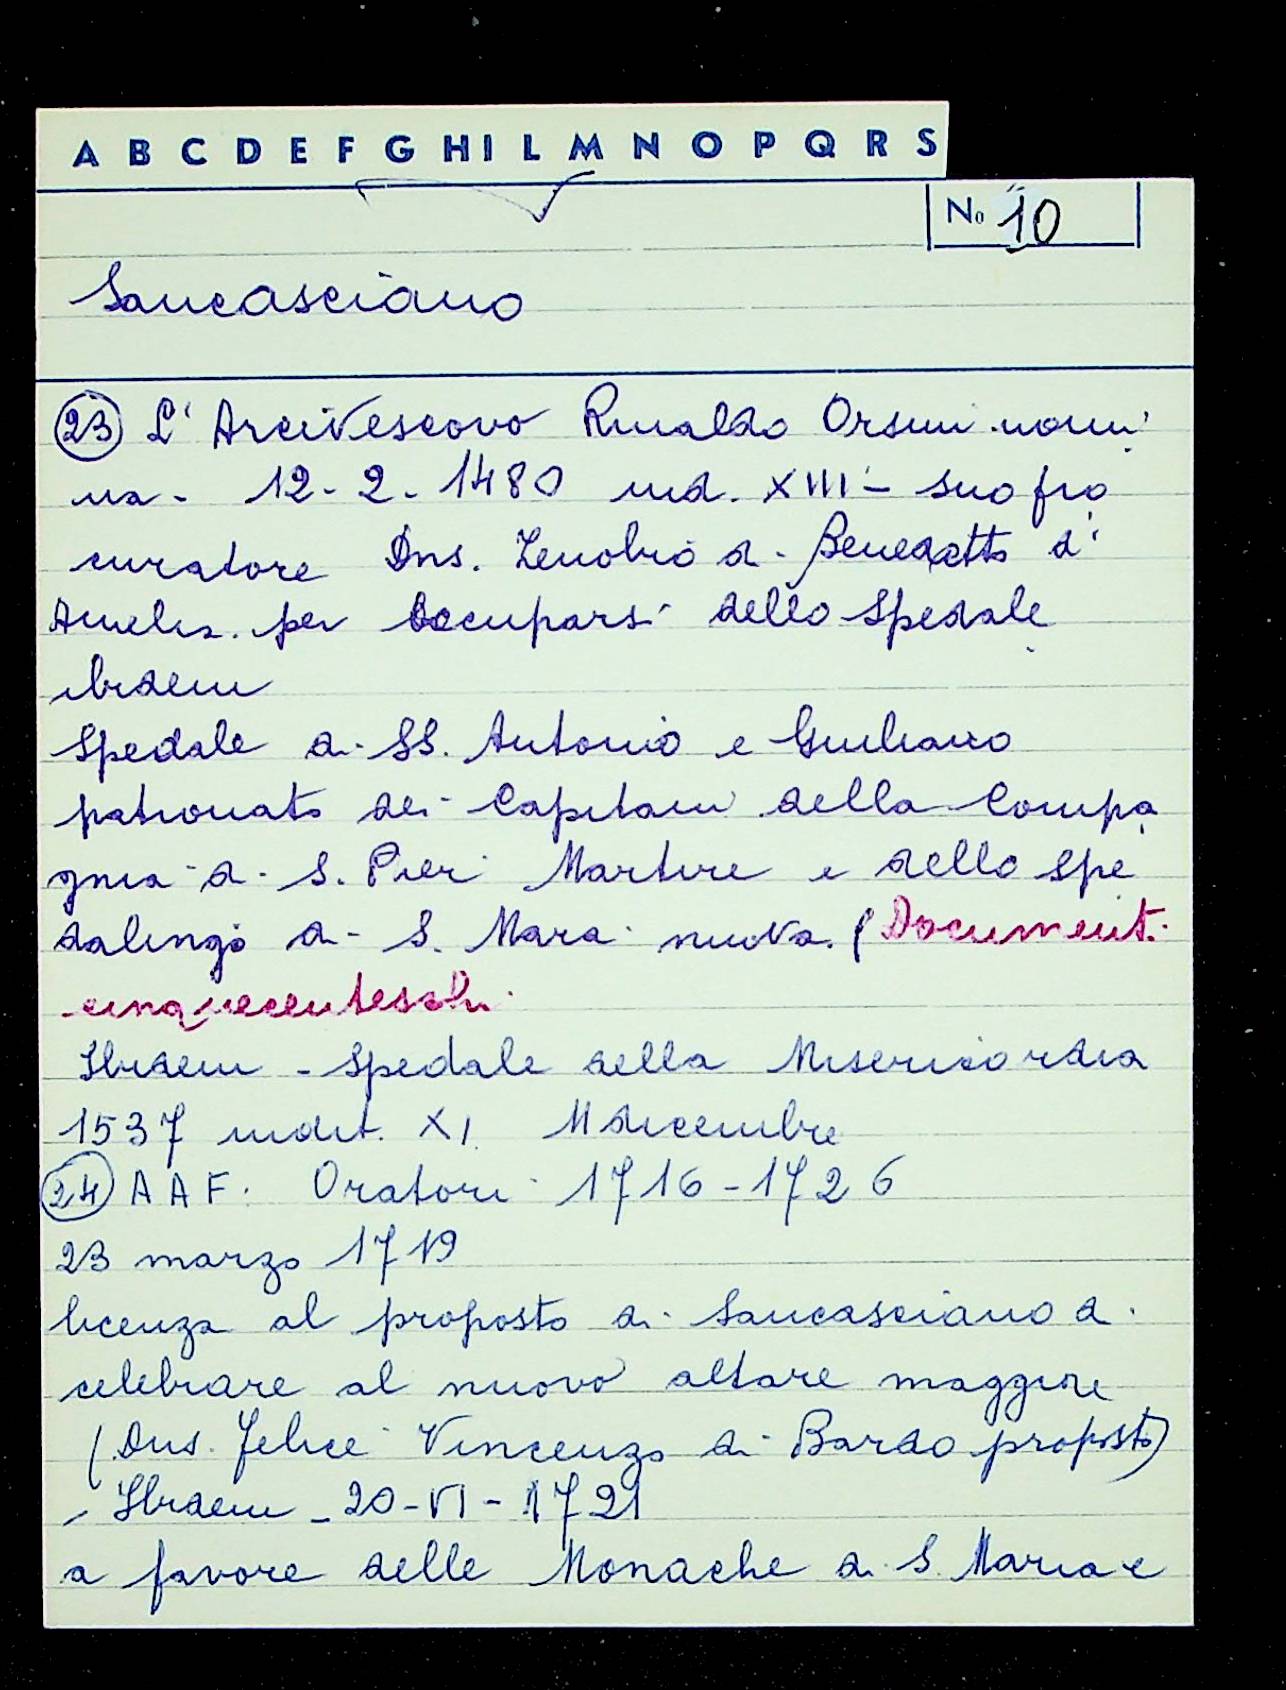 A B C D E F G H I L M N O P Q R S
No 10
Sancasciano
23 L'Arcivescovo Rinaldo Orsini nomi
na - 12-2-1480 ind. XIII - suo pro
curatore Dns. Zenobio di Benedetto d'
Amelia per occuparsi dello Spedale
ibidem
Spedale di SS. Antonio e Giuliano
patronato dei Capitani della Compa
gnia di S. Pier Martire e dello Spe
dalingo di S. Maria nuova. (Documenti
cinquecenteschi
Ibidem - Spedale della Misericordia
1537 indit. XI 11 dicembre
24 A A F. Oratori 1716-1726
23 marzo 1719
licenza al proposto di Sancasciano di
celebrare al nuovo altare maggiore
(Dns. Felice Vincenzo di Bardo proposto)
Ibidem - 20-VI-1721
a favore delle Monache di S. Maria e